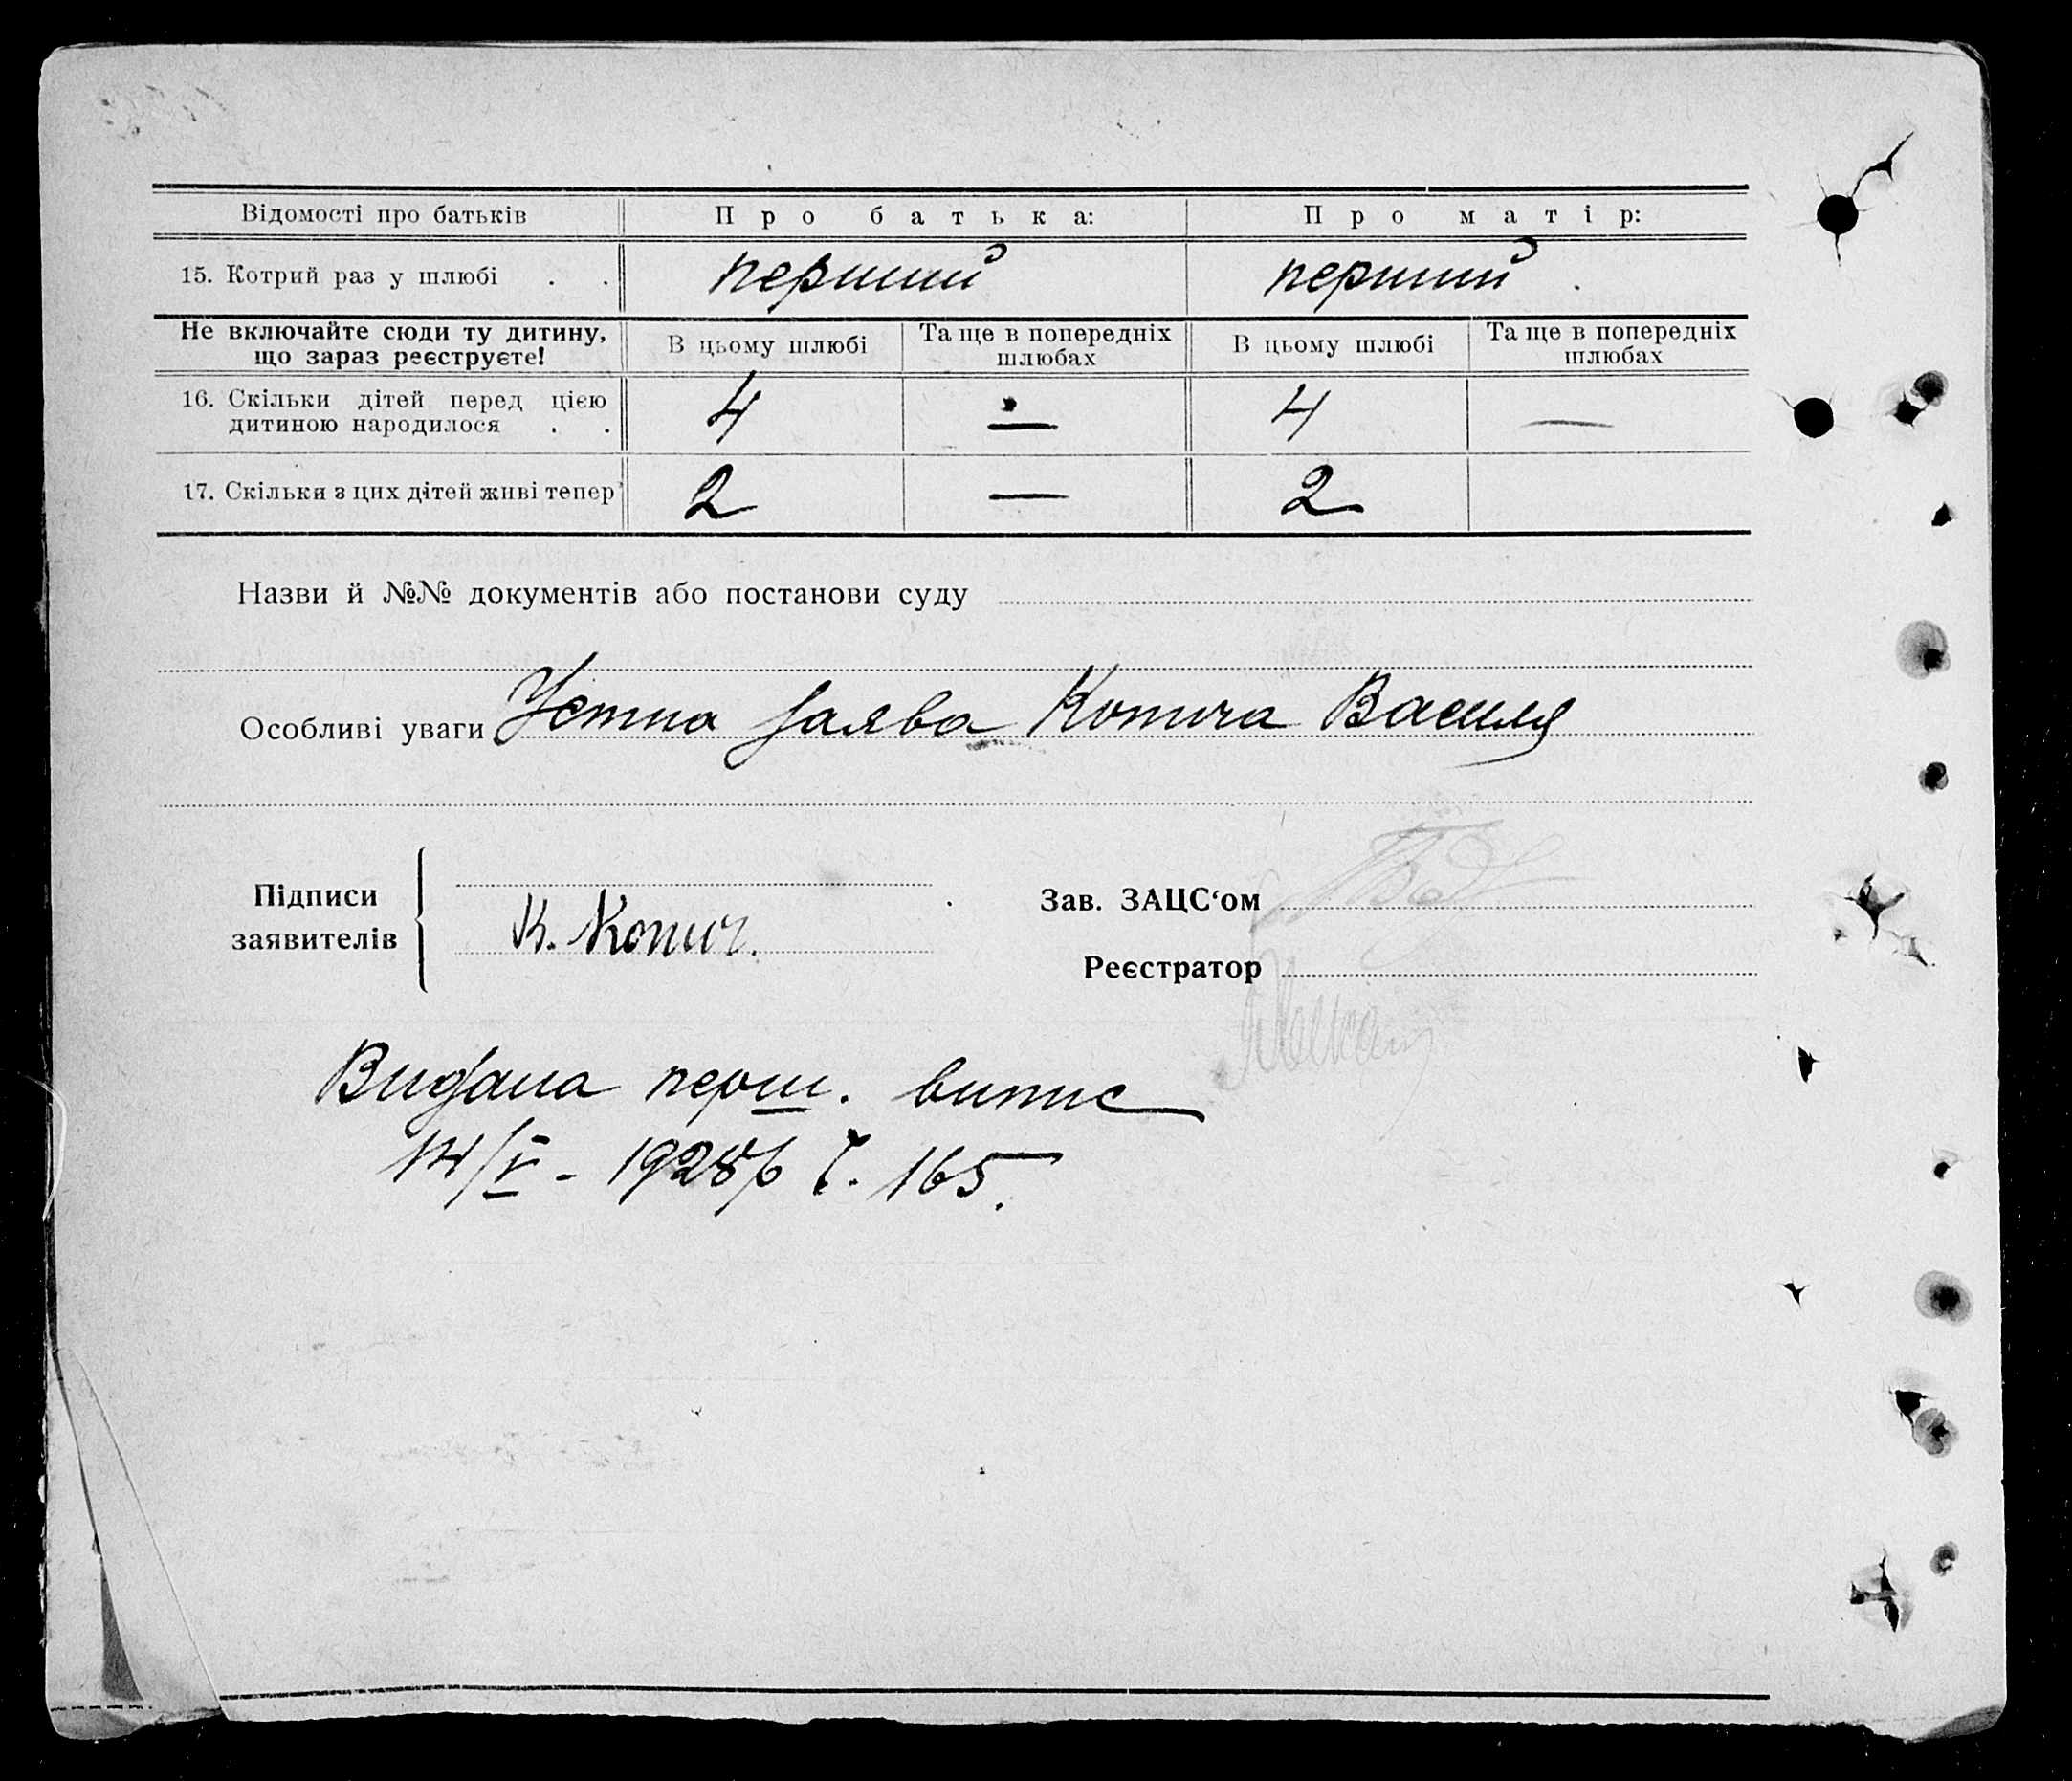 Відомості про батьків Про батька: Про матір:
15. Котрий раз у шлюбі . . перший перший .
Не включайте сюди ту дитину, що зараз реєструєте! В цьому шлюбі Та ще в попередніх шлюбах В цьому шлюбі Та ще в попередніх шлюбах
16. Скільки дітей перед цією дитиною народилося . . 4 — 4 —
17. Скільки з цих дітей живі тепер 2 — 2
Назви й №№ документів або постанови суду
Особливі уваги Устна заява Копича Василя
Підписи заявителів
К. Копич.
Зав. ЗАЦС‘ом
Реєстратор
Видана перш. випис
14/V - 1928 р Ч. 165.